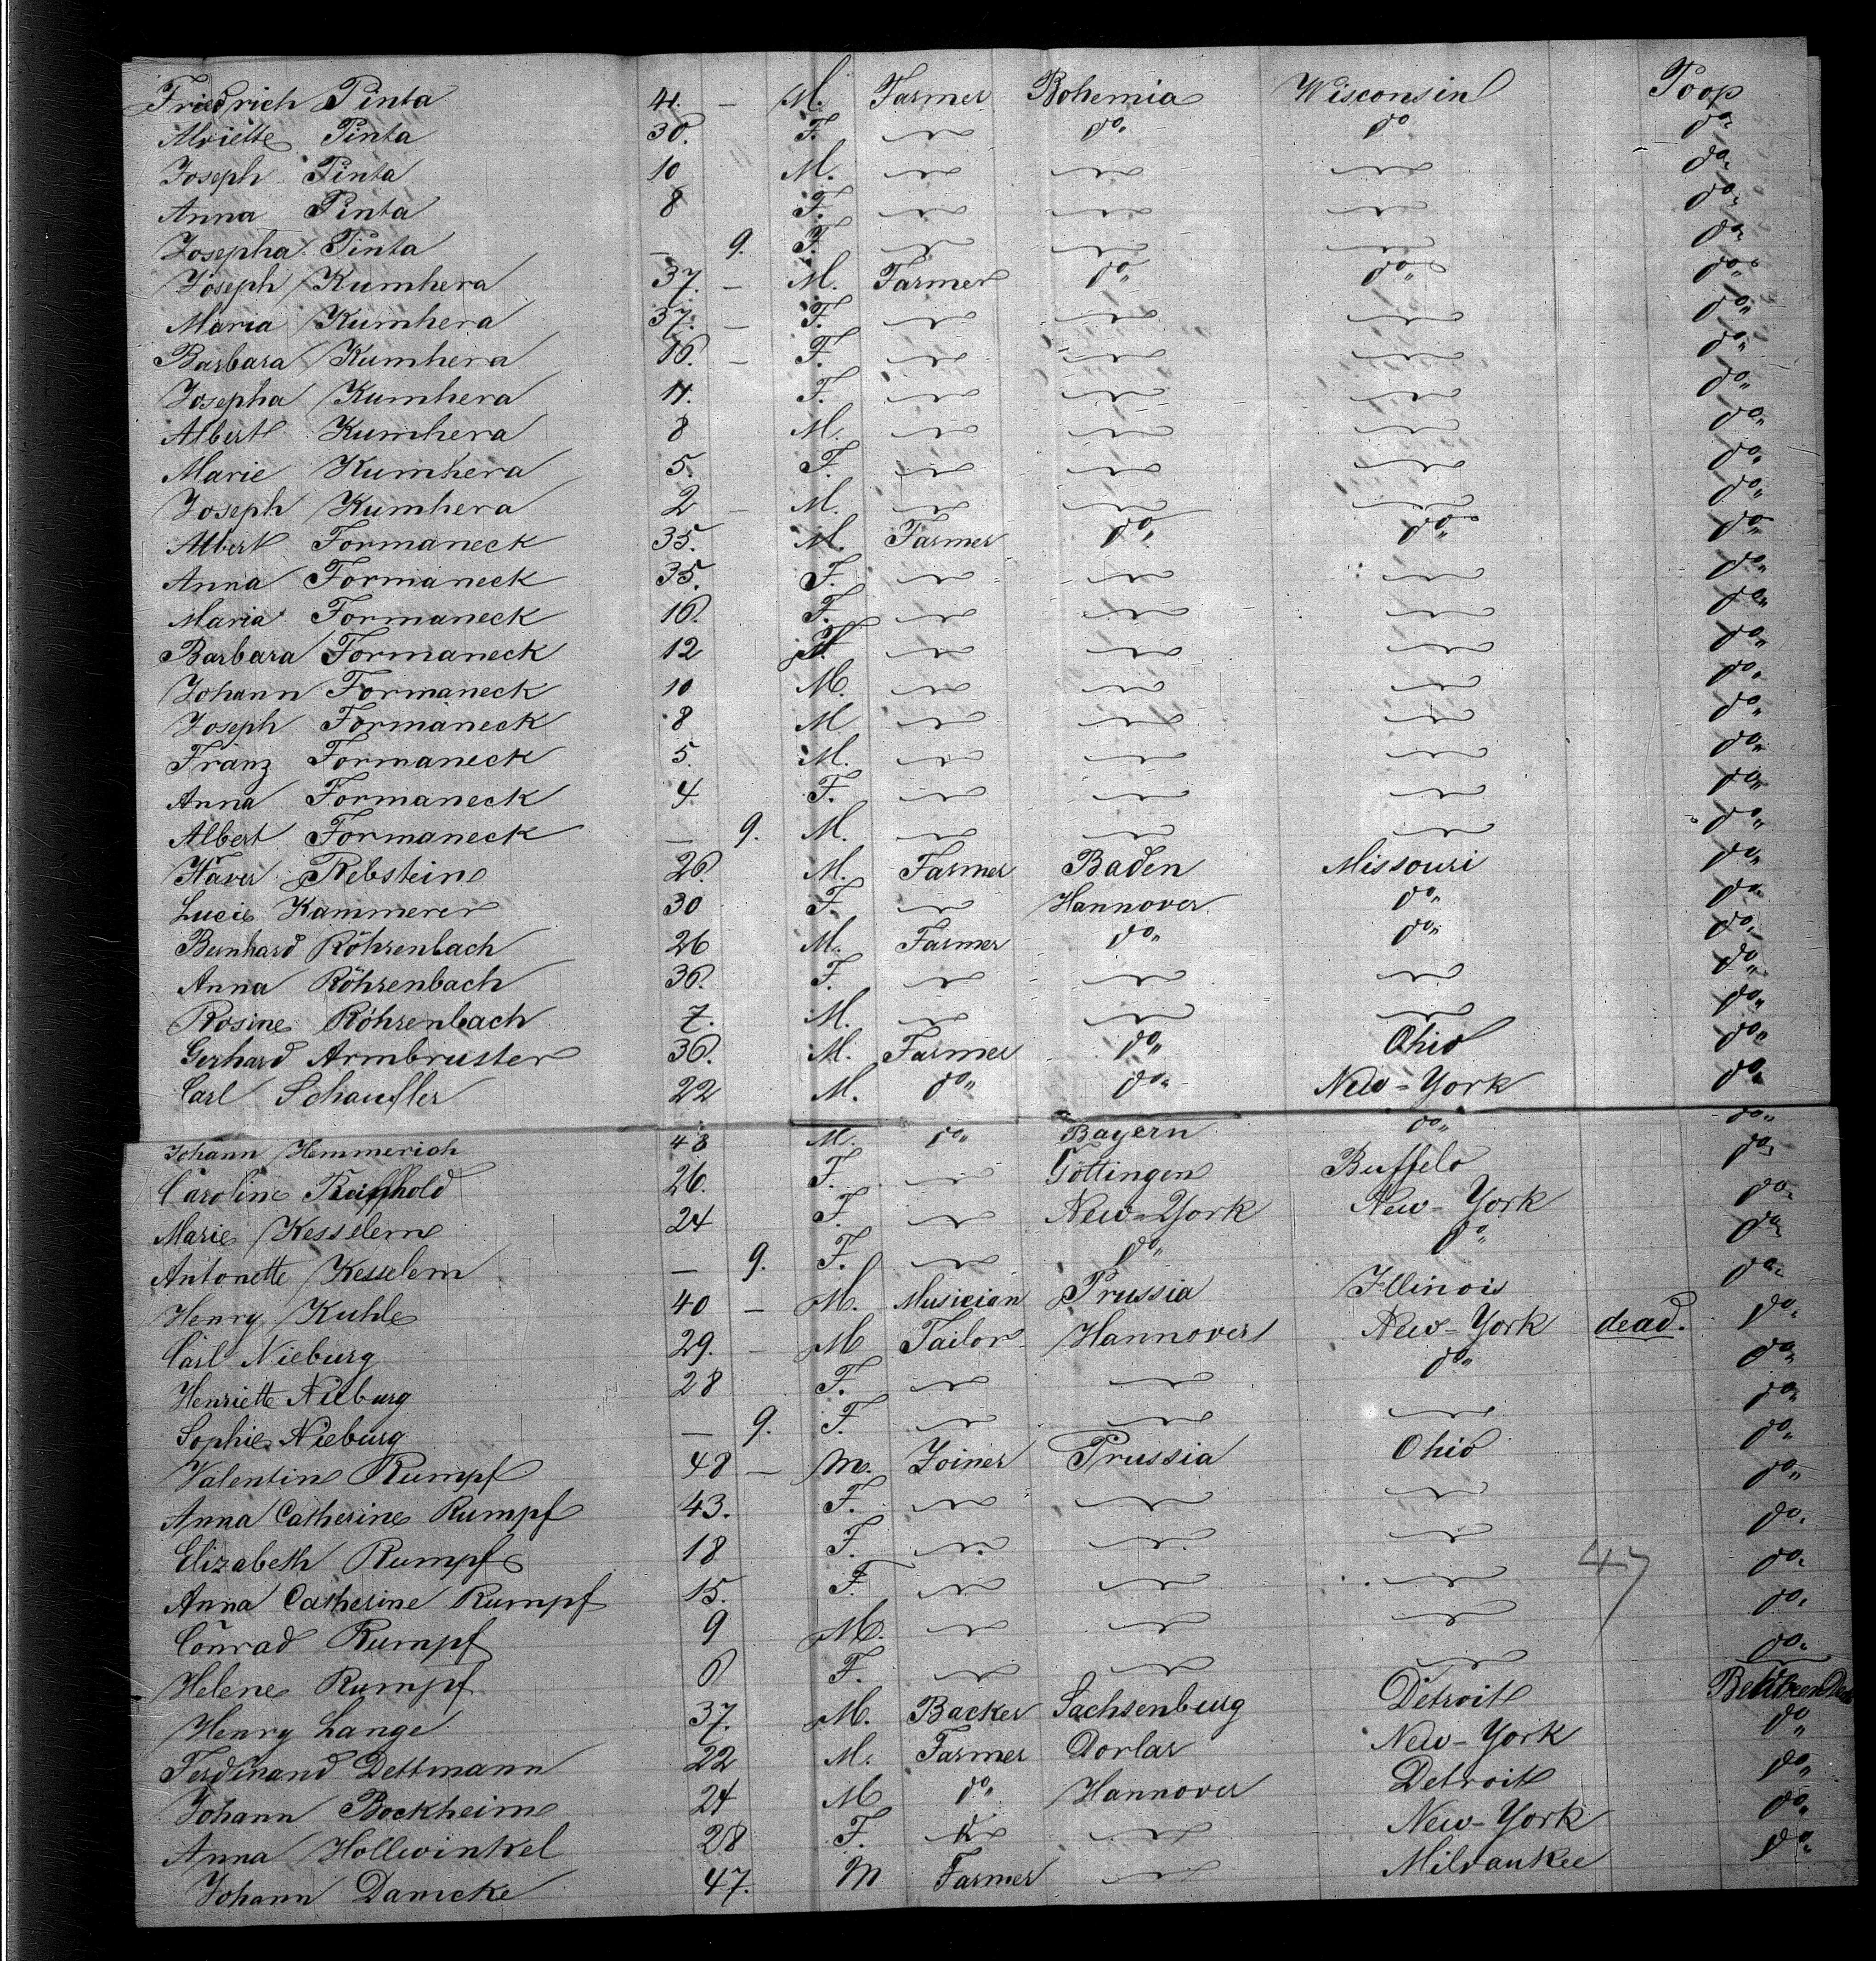 Friedrich Pinta 41. — M. Farmer Bohemia Wisconsin Poop
Alviette Pinta 30. F. do" do do"
Joseph Pinta 10 M. do"
Anna Pinta 8 F. do"
Josepha Pinta — 9. F. do"
Joseph Kumhera 37. — M. Farmer do" do" do"
Maria Kumhera 37. — F. do"
Barbara Kumhera 16. — F. do"
Josepha Kumhera 11. F. do"
Albert Kumhera 8 M. do"
Marie Kumhera 5. F. do"
Joseph Kumhera 2 — M. do"
Albert Formaneck 35. M. Farmer do" do" do"
Anna Formaneck 35. F. do"
Maria Formaneck 16. F. do"
Barbara Formaneck 12 F. do"
Johann Formaneck 10 M. do"
Joseph Formaneck 8 M do"
Franz Formaneck 5. M. do"
Anna Formaneck 4 F. do"
Albert Formaneck — 9. M. do"
Xaver Rebstein 26. M. Farmer Baden Missouri do"
Lucie Kammerer 30 F. Hannover do" do"
Bernhard Röhrenbach 26 M. Farmer do" do" do"
Anna Röhrenbach 36. F. do"
Rosine Röhrenbach 7. M. do"
Gerhard Armbruster 36. M. Farmer do" Ohio do"
Carl Schaufler 22 M. do" do" New-York do"
Johann Hemmerich 48 M. do" Bayern do" do"
Caroline 26. F. Göttingen Buffelo do"
Marie Kesselem 24 F. New-York New-York do"
Antonette Kesselem — 9. F. do" do" do"
Henry Kuhle 40 — M. Musician Prussia Illinois do"
Carl Nieburg 29. — M Tailor Hannover New-York dead. do"
Henriette Nieburg 28 F. do" do"
Sophie Nieburg — 9. F. do"
Valentin Rumpf 48 — M. Joiner Prussia Ohio do"
Anna Catherine Rumpf 43. F. do"
Elizabeth Rumpf 18 F. do"
Anna Catherine Rumpf 15. F. 47 do"
Conrad Rumpf 9 M. do"
Helene Rumpf 6 F. do"
Henry Lange 37. M. Backer Sachsenburg Detroit Between Deck
Ferdinand Dettmann 22 M. Farmer Dorlar New-York do"
Johann Bockheim 24 M do" Hannover Detroit do"
Anna Hollwinkel 28 F. New-York do"
Johann Damcke 47. M Farmer Milvaukee do"